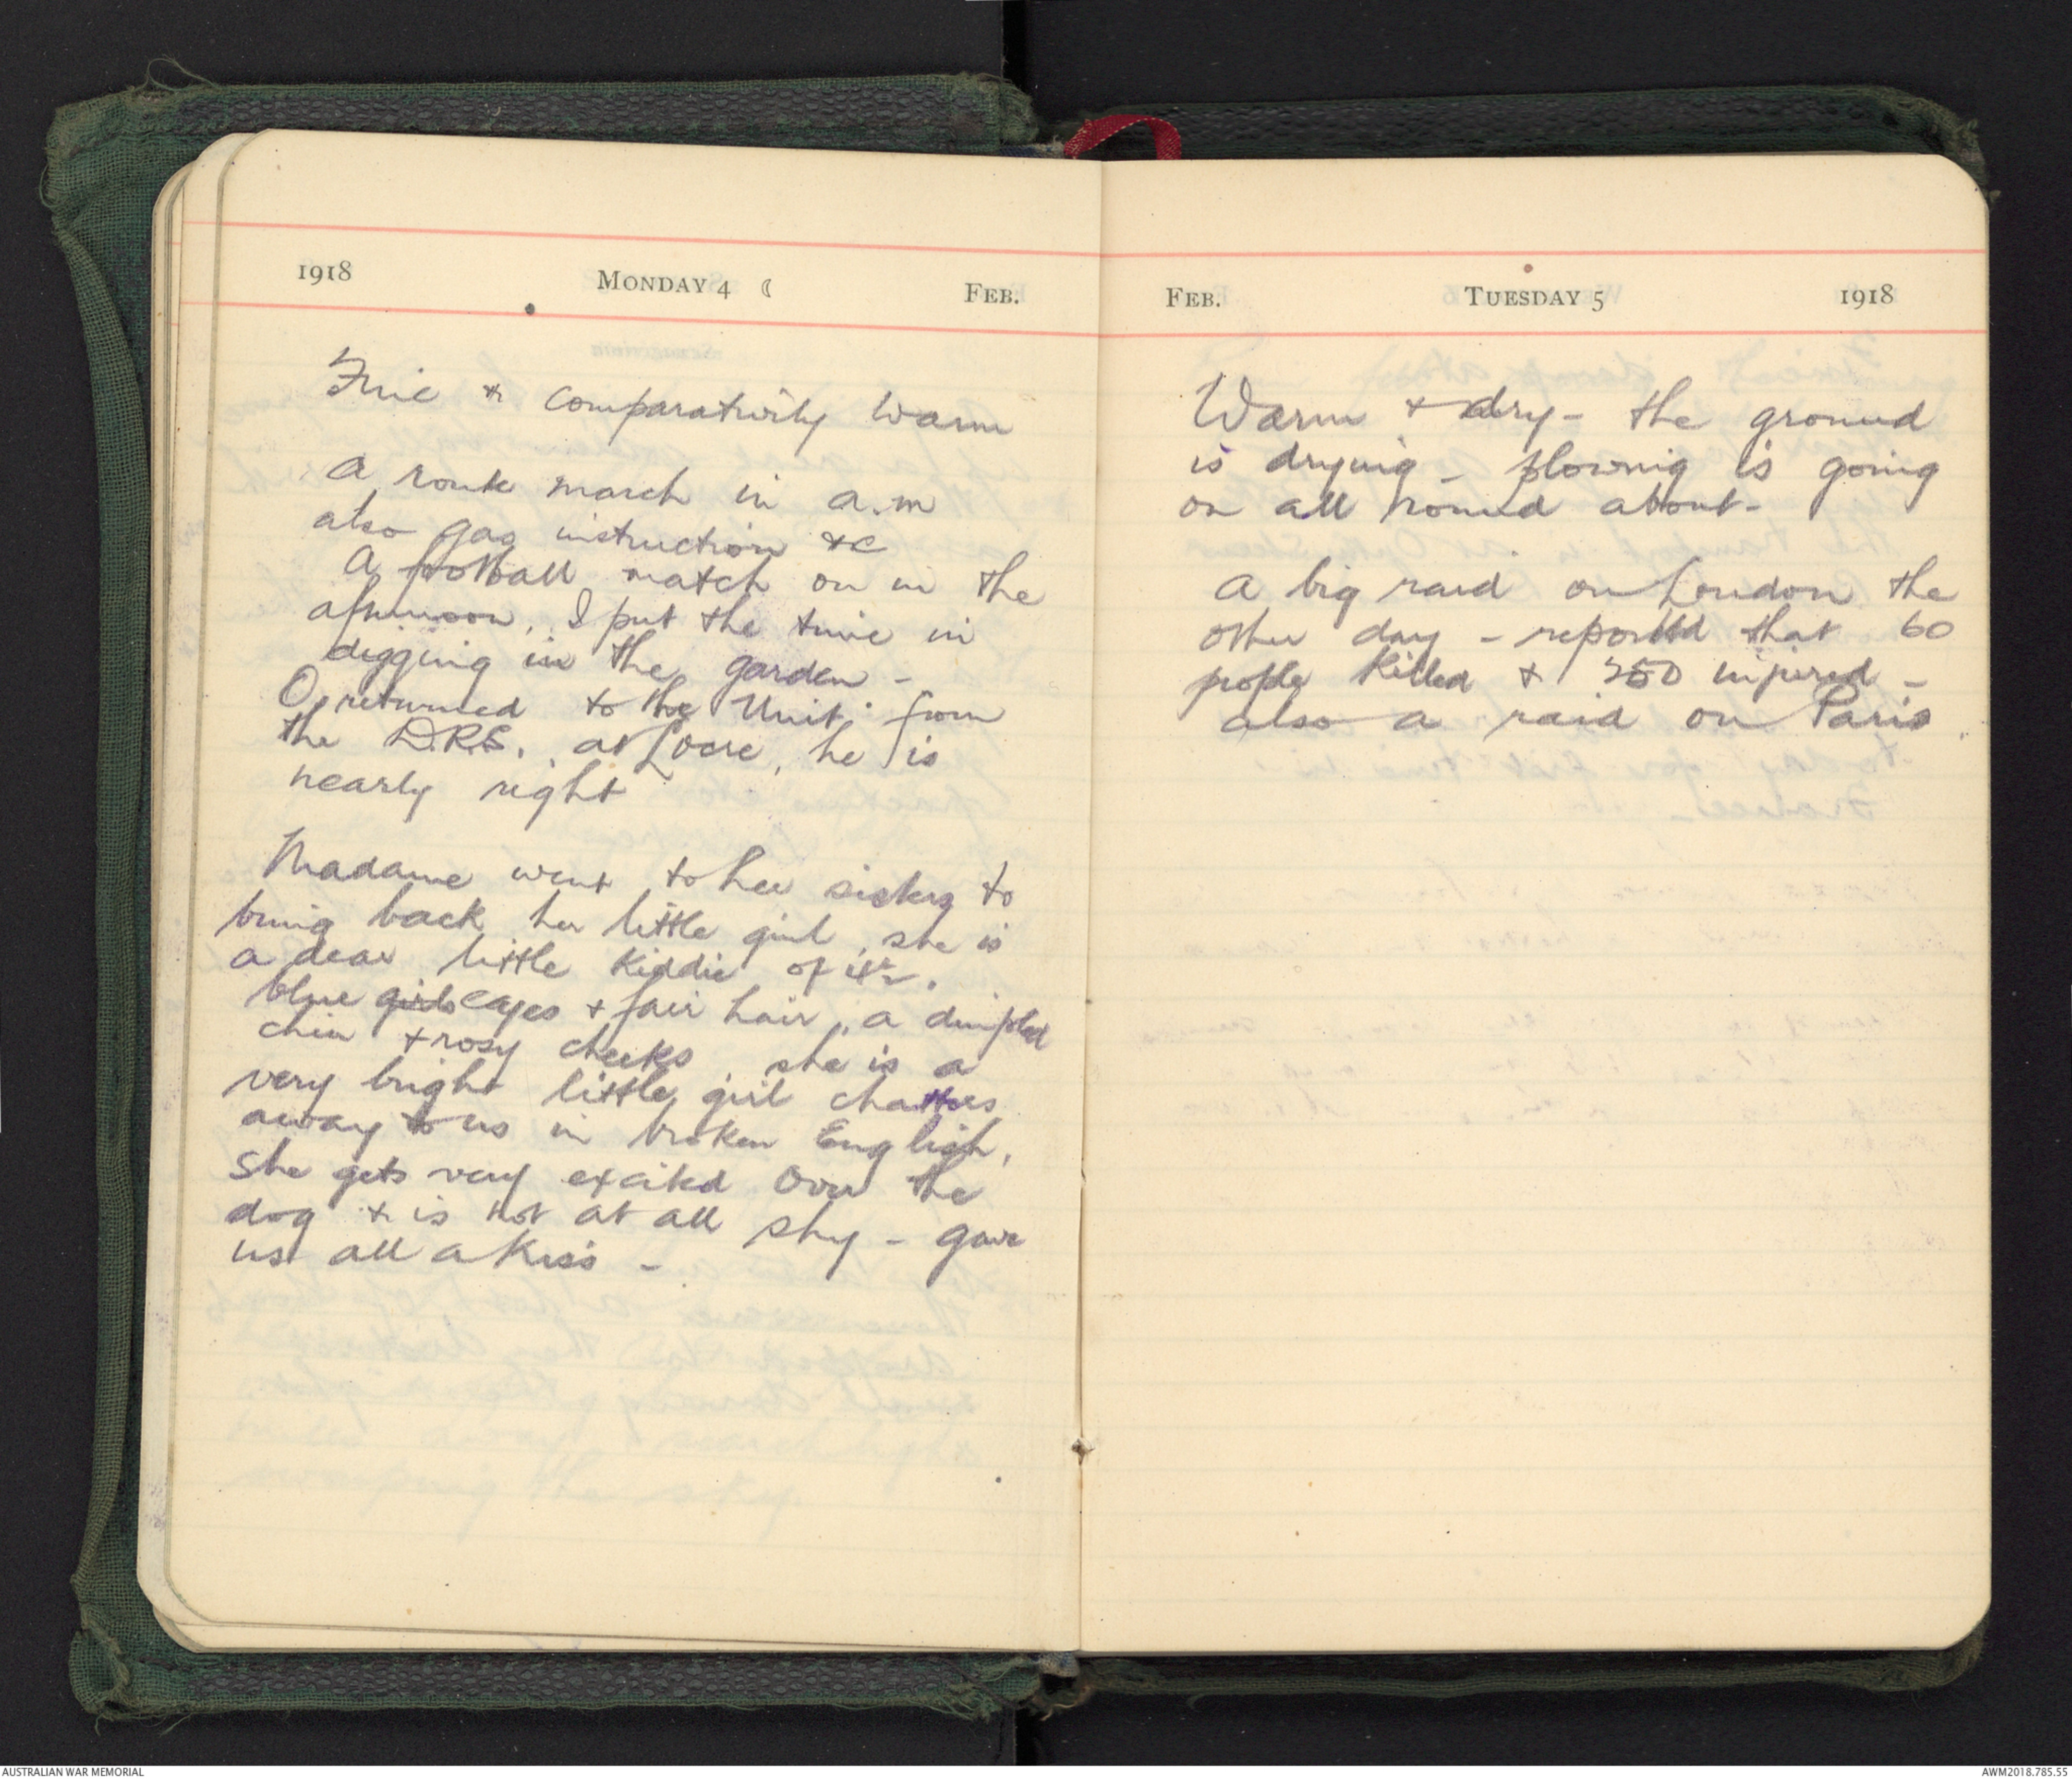 1918 MONDAY 4 ☾ FEB.
Fine & comparatively warm
A route march in a.m
also gas instruction &c
A football match on in the
afternoon, I put the time in
digging in the garden -
O, returned to the Unit from
the D.R.S. at Locre, he is
nearly right
Madame went to her sisters to
bring back her little girl, she is
a dear little kiddie of
blue girls eyes & fair hair, a dimpled
chin & rosy cheeks she is a
very bright little girl chatters
away to us in broken English,
She gets very excited over the
dog & is not at all shy - gave
us all a kiss -
FEB. TUESDAY 5 1918
Warm & dry - the ground
is drying - plowing is going
on all round about -
A big raid on London the
other day - reported that 60
people killed & 250 injured -
also a raid on Paris
AUSTRALIAN WAR MEMORIAL
AWM2018.785.55